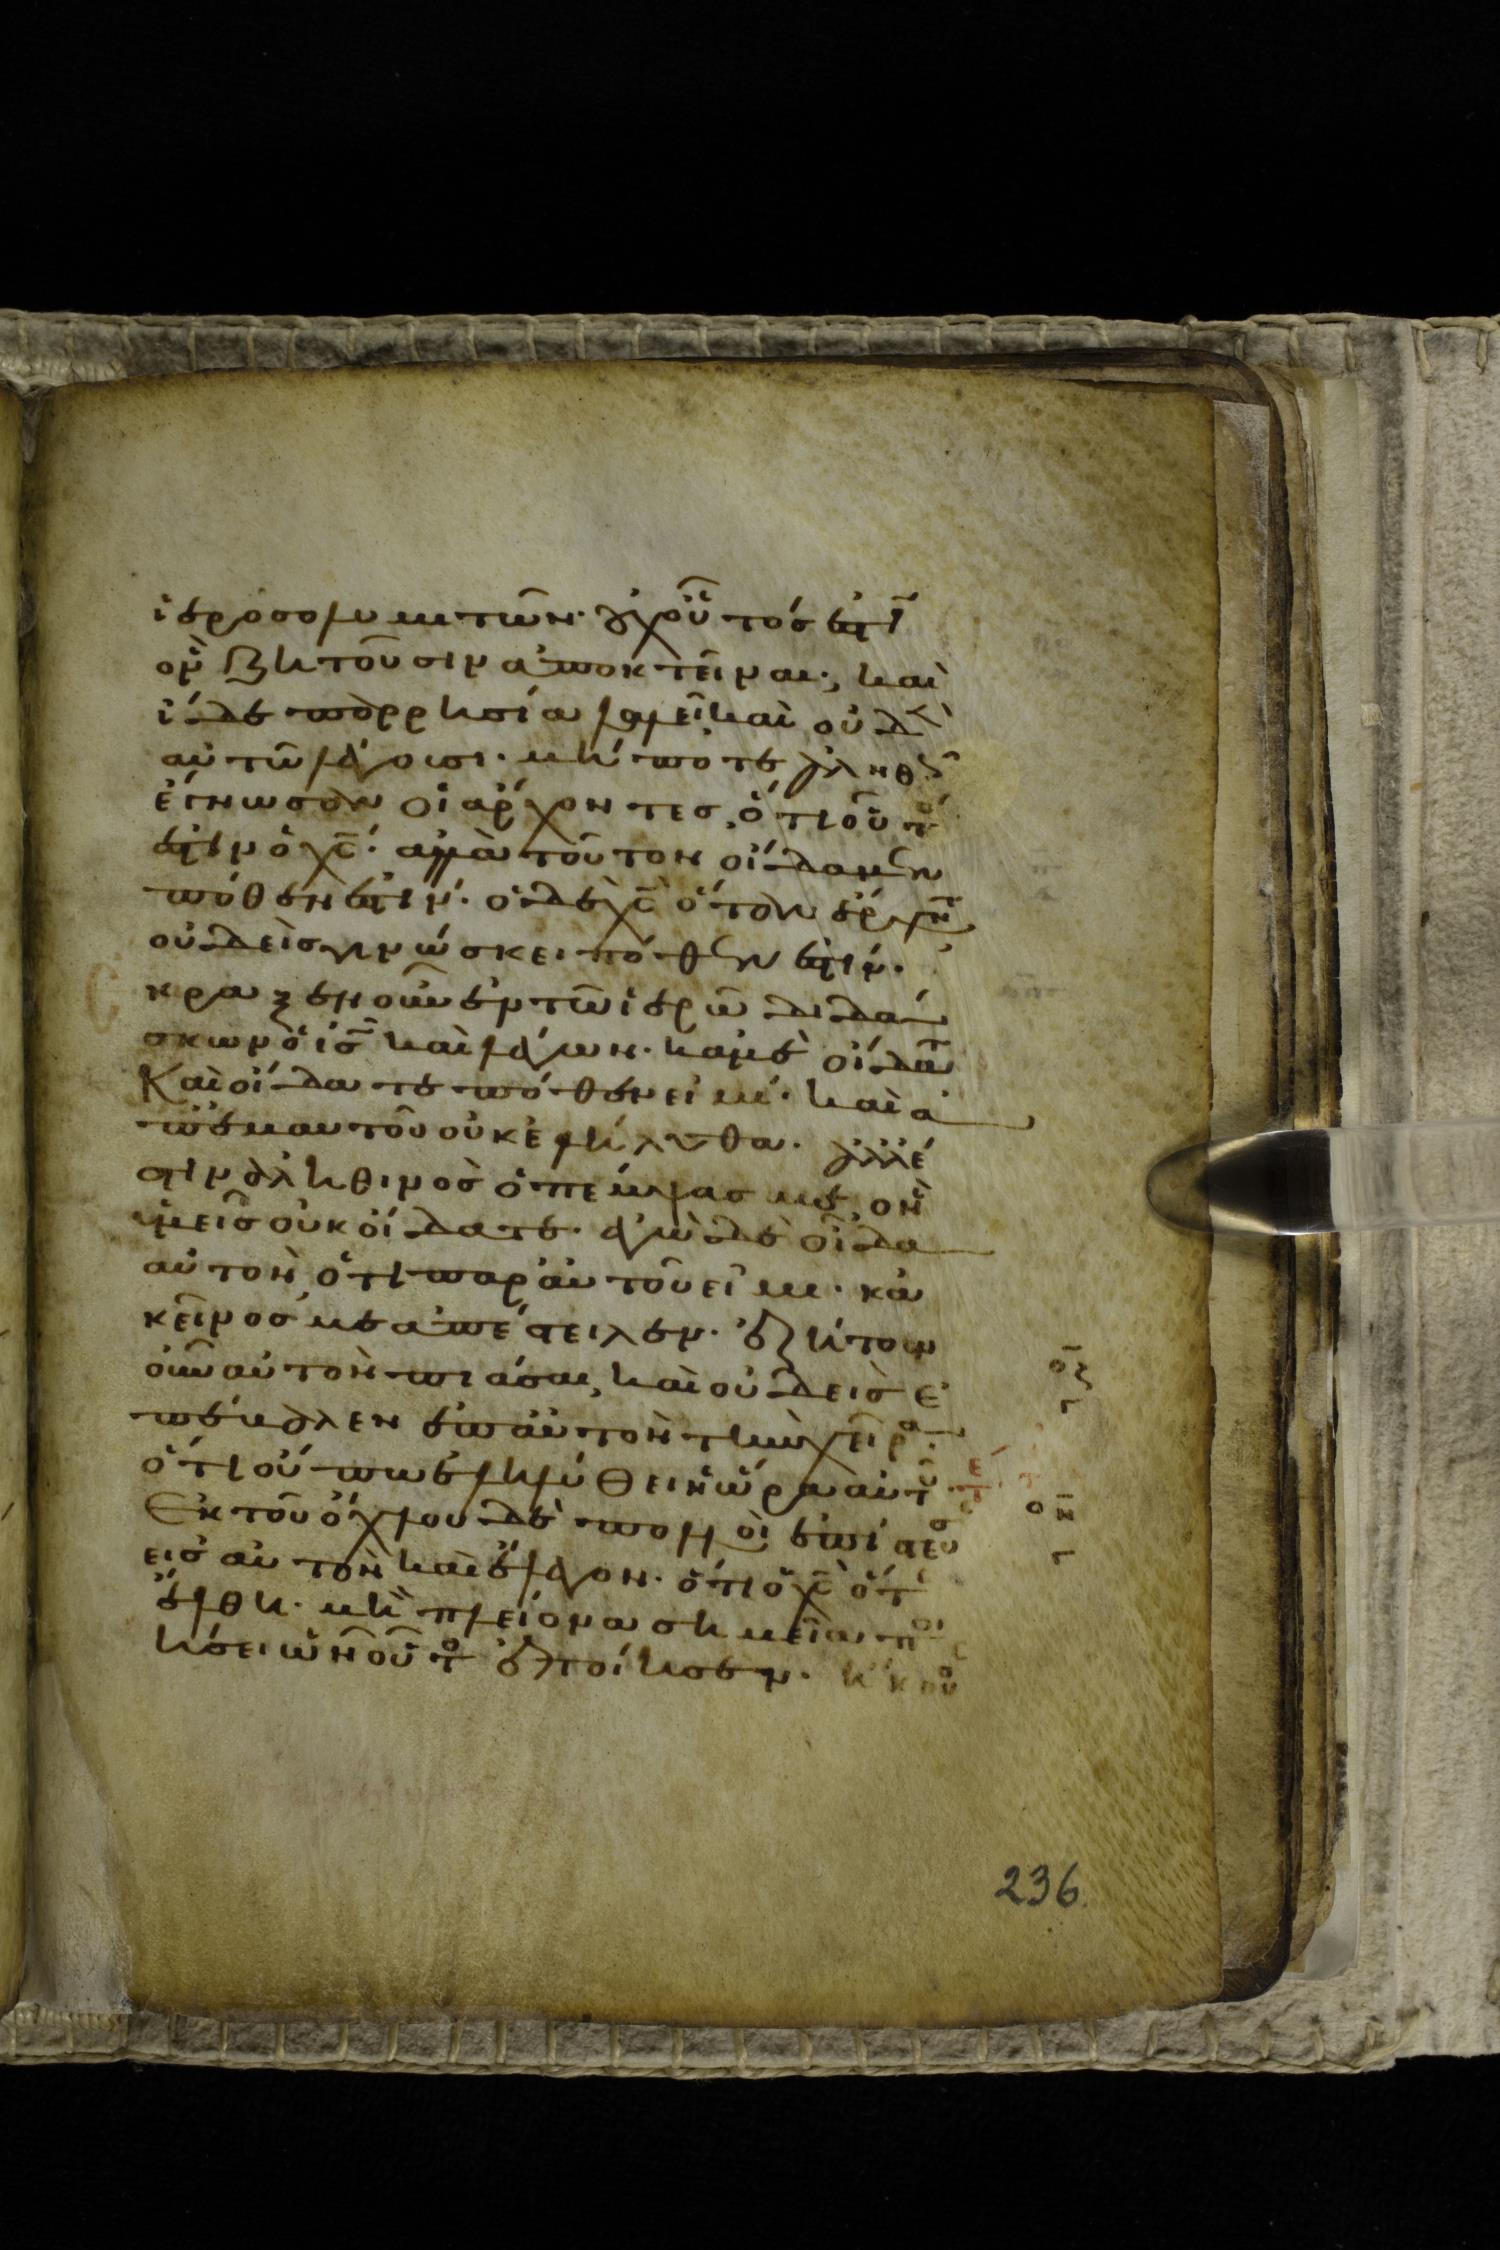 ἱεροσολυμιτῶν· οὐχοὗτός ἐστῒ
ὃν ζητοῦσιν ἀποκτεῖναι, καὶ
ἴδε παρρησία λαλεῖ καὶ οὐδὲ
αὐτῶ λέγουσι· μήποτε ἀληθῶς
ἔγνωσαν οἱ ἄρχοντες, ὅτι οὗτο
ἐστιν ὁ χς· ἀλλὰ τοῦτον οἴδαμεν
πόθεν ἐστίν· ὁ δὲ χς ὅταν ἔρχητ
οὐδεὶς γινώσκει πόθεν ἐστίν·
κραξεν οὖν ἐν τῶ ἱερῶ διδά
σκων ὁ ις καὶ λέγων· καμὲ οἴδατ
Καὶ οἴδατε πόθεν εἰμί· καὶ ἀ
π' ἐμαυτοῦ οὐκ ἐλήλυθα· ἀλλ' ἔ
στιν ἀληθινὸς ὁ πέμψας με, ὃν
ὑμεῖς οὐκ οἴδατε· ἐγὼ δὲ οἶδα
αὐτὸν ὅτι παρ' αὐτοῦ εἰμι· κἀ
κεῖνος με ἀπέστειλεν· ἐζήτουν
οὖν αὐτὸν πιάσαι, καὶ οὐδεὶς ἐ
πέβαλεν ἐπ' αὐτὸν τὴν χεῖρα·
ὅτι οὔπω ἐληλύθει ἡ ὥρα αὐτοῦ
Ἐκ τοῦ ὄχλου δὲ πολλοὶ ἐπίστευσ
εἰς αὐτὸν καὶ ἔλεγον· ὅτι ὁ χς ὅτ
ἔλθη· μὴ πλείονα σημεῖα ποι
ήσει ὧν οὗτο ἐποίησεν· ἤκου
236